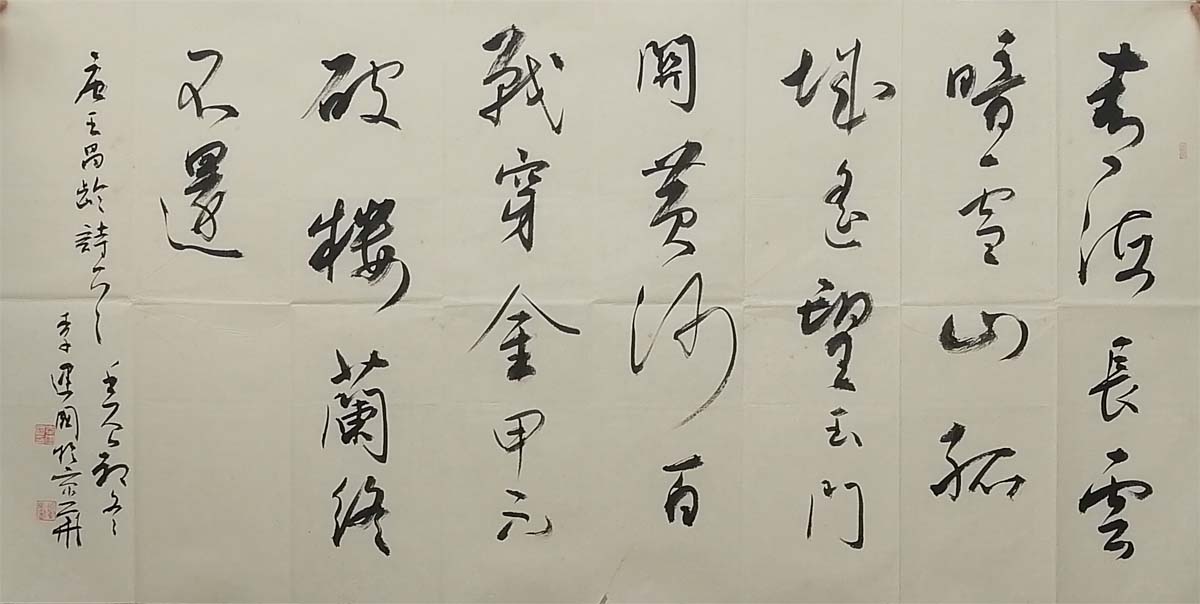 青海長雲
暗雪山孤
城遙望玉門
關黃沙百
戰穿金甲不
破樓蘭終
不還
唐王昌齡詩
初冬
李國於京華